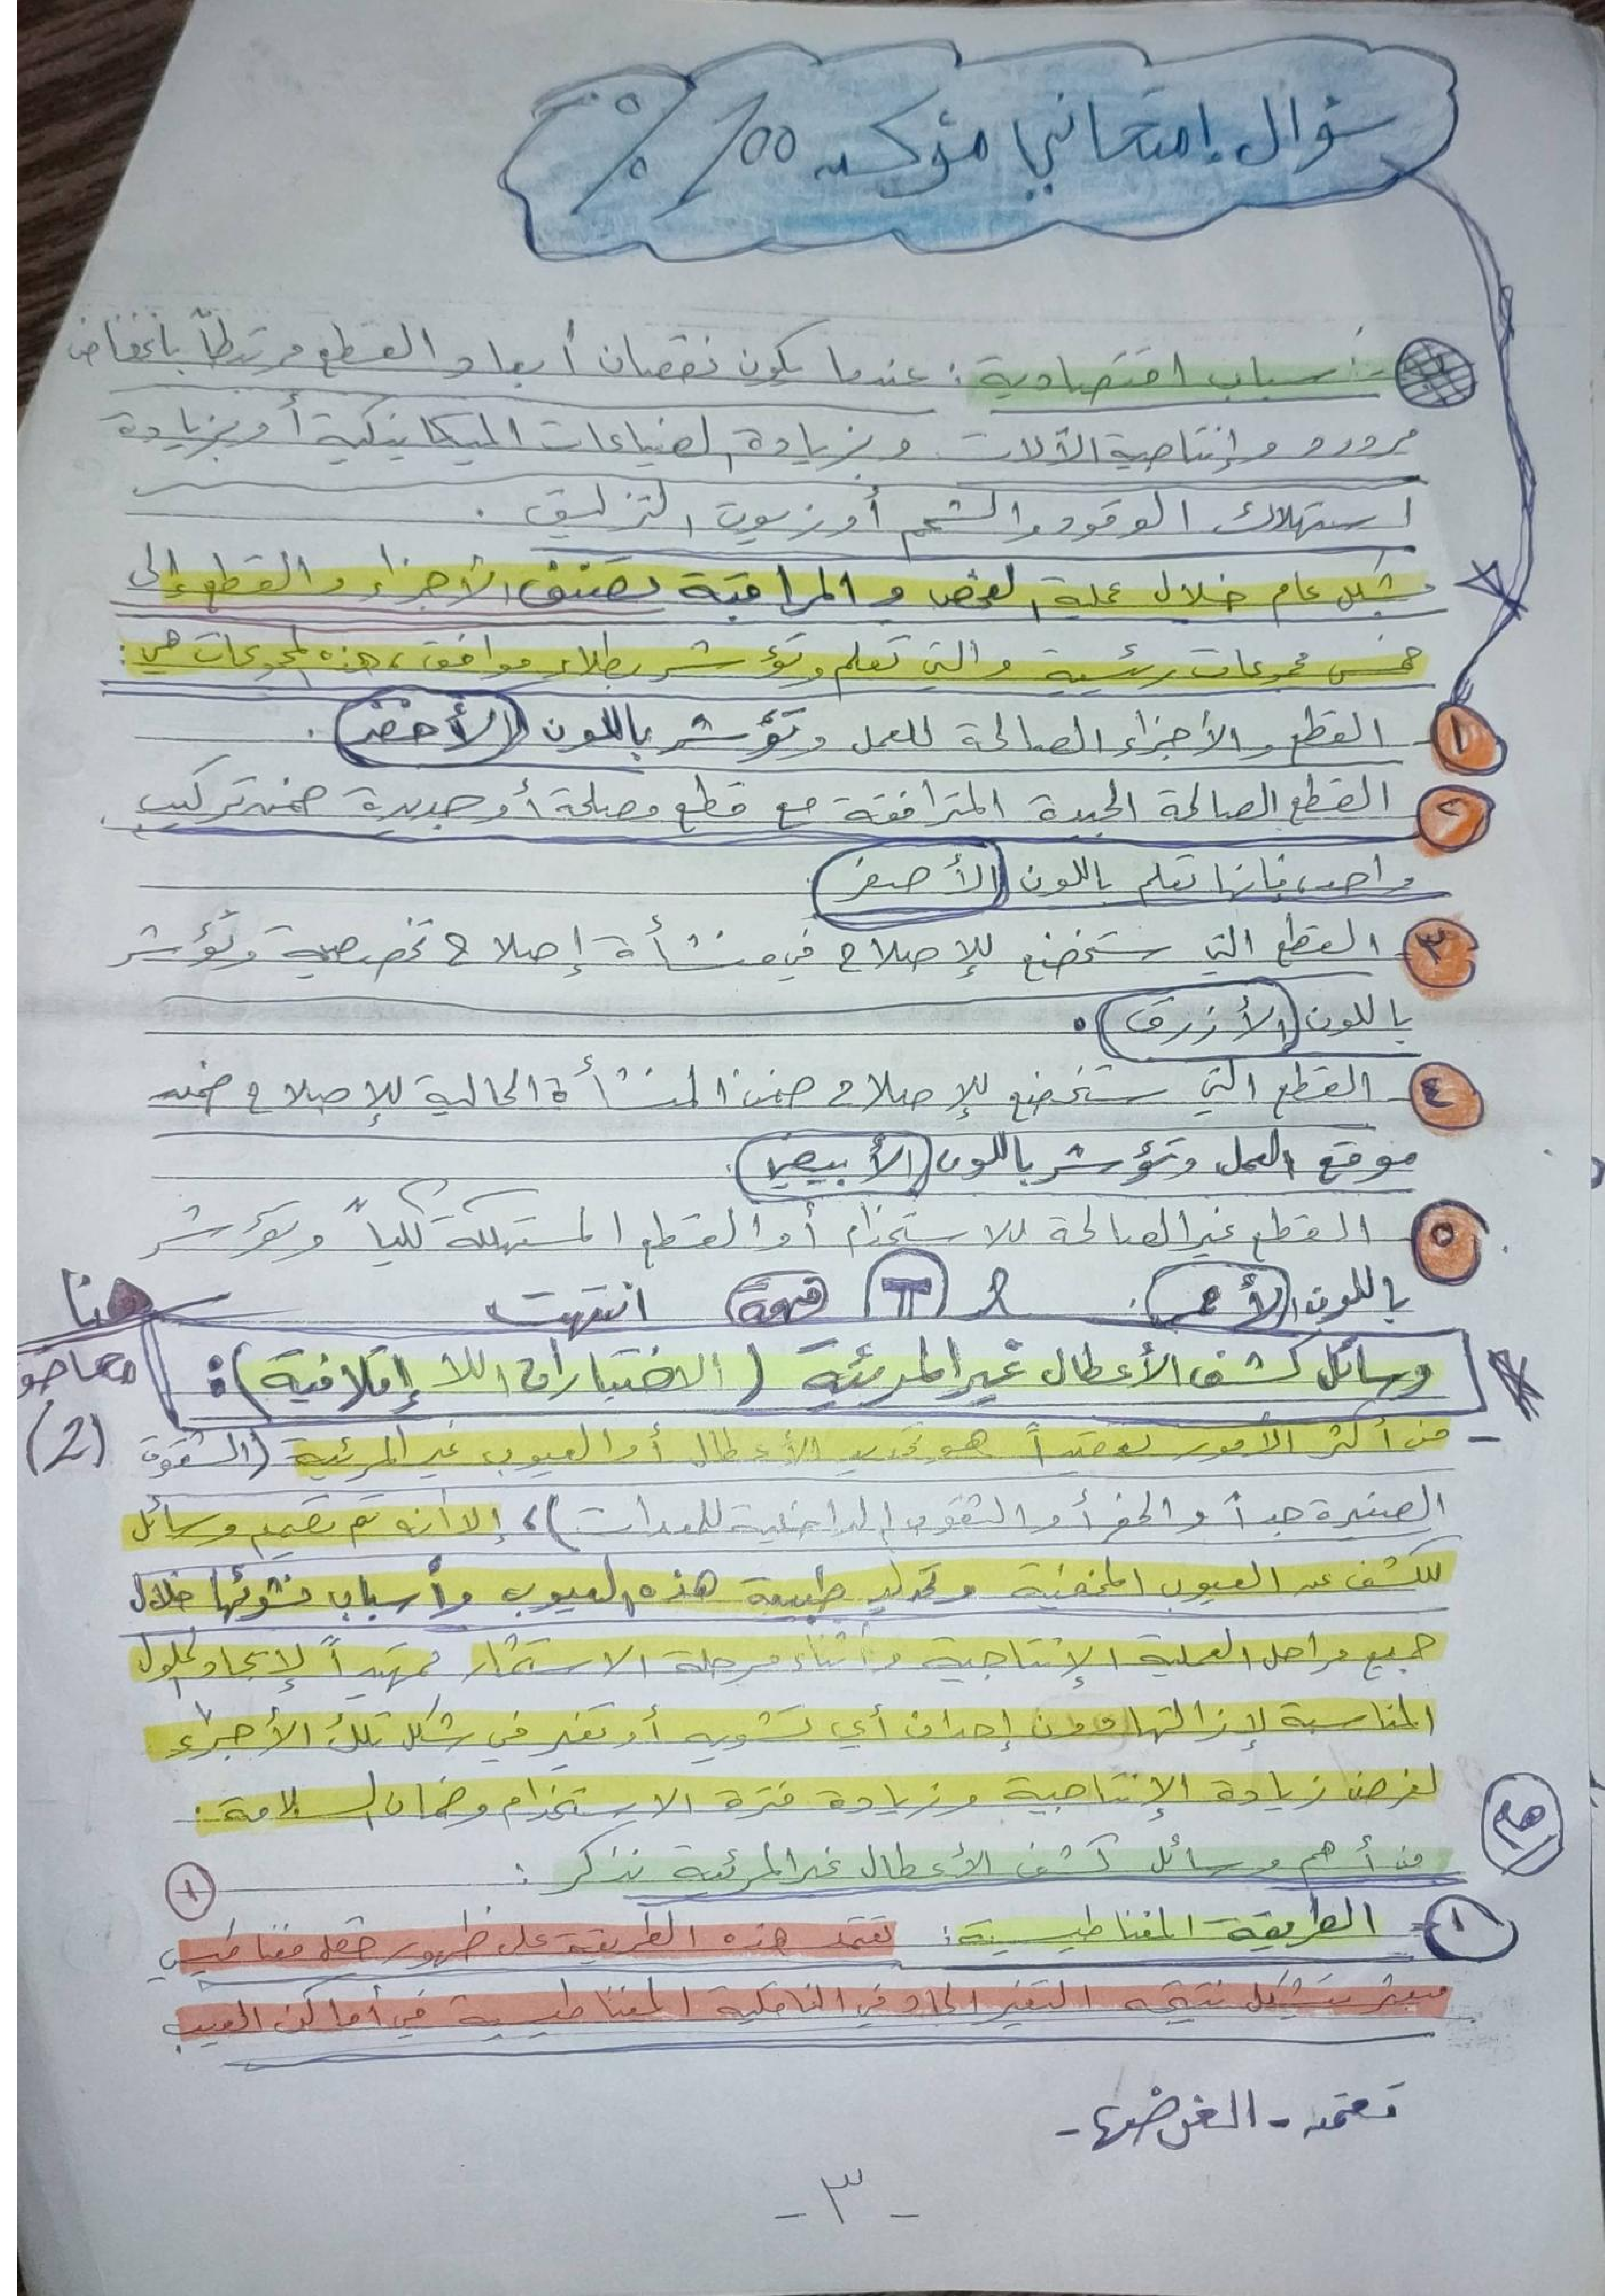 سؤال إمتحاني مؤكد 100%
أسباب اقتصادية: عندما يكون نقصان أبعاد القطع مرتبطاً بانخفاض
مردود وإنتاجية الآلات وبزيادة الضياعات الميكانيكية أو بزيادة
استهلاك الوقود والشحم أو زيوت التزليق.
بشكل عام خلال عملية الفحص والمراقبة تصنف الأجزاء والقطع إلى
خمس مجموعات رئيسية والتي تعلم وتؤشر بطلاء موافق، هذه المجموعات هي:
١ القطع والأجزاء الصالحة للعمل وتؤشر باللون (الأخضر).
٢ القطع الصالحة الجيدة المترافقة مع قطع مصلحة أو جديدة ضمن تركيب
واحد، فإنها تعلم باللون (الأصفر).
٣ القطع التي ستخضع للإصلاح في منشأة إصلاح تخصصية وتؤشر
باللون (الأزرق).
٤ القطع التي ستخضع للإصلاح ضمن المنشأة الحالية للإصلاح ضمن
موقع العمل وتؤشر باللون (الأبيض).
٥ القطع غير الصالحة للاستخدام أو القطع المستهلكة كلياً وتؤشر
باللون (الأحمر). انتهت
هنا
وسائل كشف الأعطال غير المرئية (الاختبارات اللا إتلافية):
(2)
- من أكثر الأمور تعقيداً هو تحديد الأعطال أو العيوب غير المرئية (الشقوق
الصغيرة جداً والحفر أو الشقوق الداخلية للمعدات)، إلا أنه تم تصميم وسائل
للكشف عن العيوب المخفية وتحديد طبيعة هذه العيوب وأسباب نشوئها خلال
جميع مراحل العملية الإنتاجية وأثناء مرحلة الاستثمار تمهيداً لإيجاد الحلول
المناسبة لإزالتها دون إحداث أي تشويه أو تغير في شكل تلك الأجزاء
لغرض زيادة الإنتاجية وزيادة فترة الاستخدام وضمان السلامة.
هام
من أهم وسائل كشف الأعطال غير المرئية نذكر:
١
١- الطريقة المغناطيسية: تعتمد هذه الطريقة على ظهور حقل مغناطيسي
مبعثر يتشكل نتيجة التغير الحاد في الناقلية المغناطيسية في أماكن العيب
تعتمد - الغرض منها -
- ٣ -